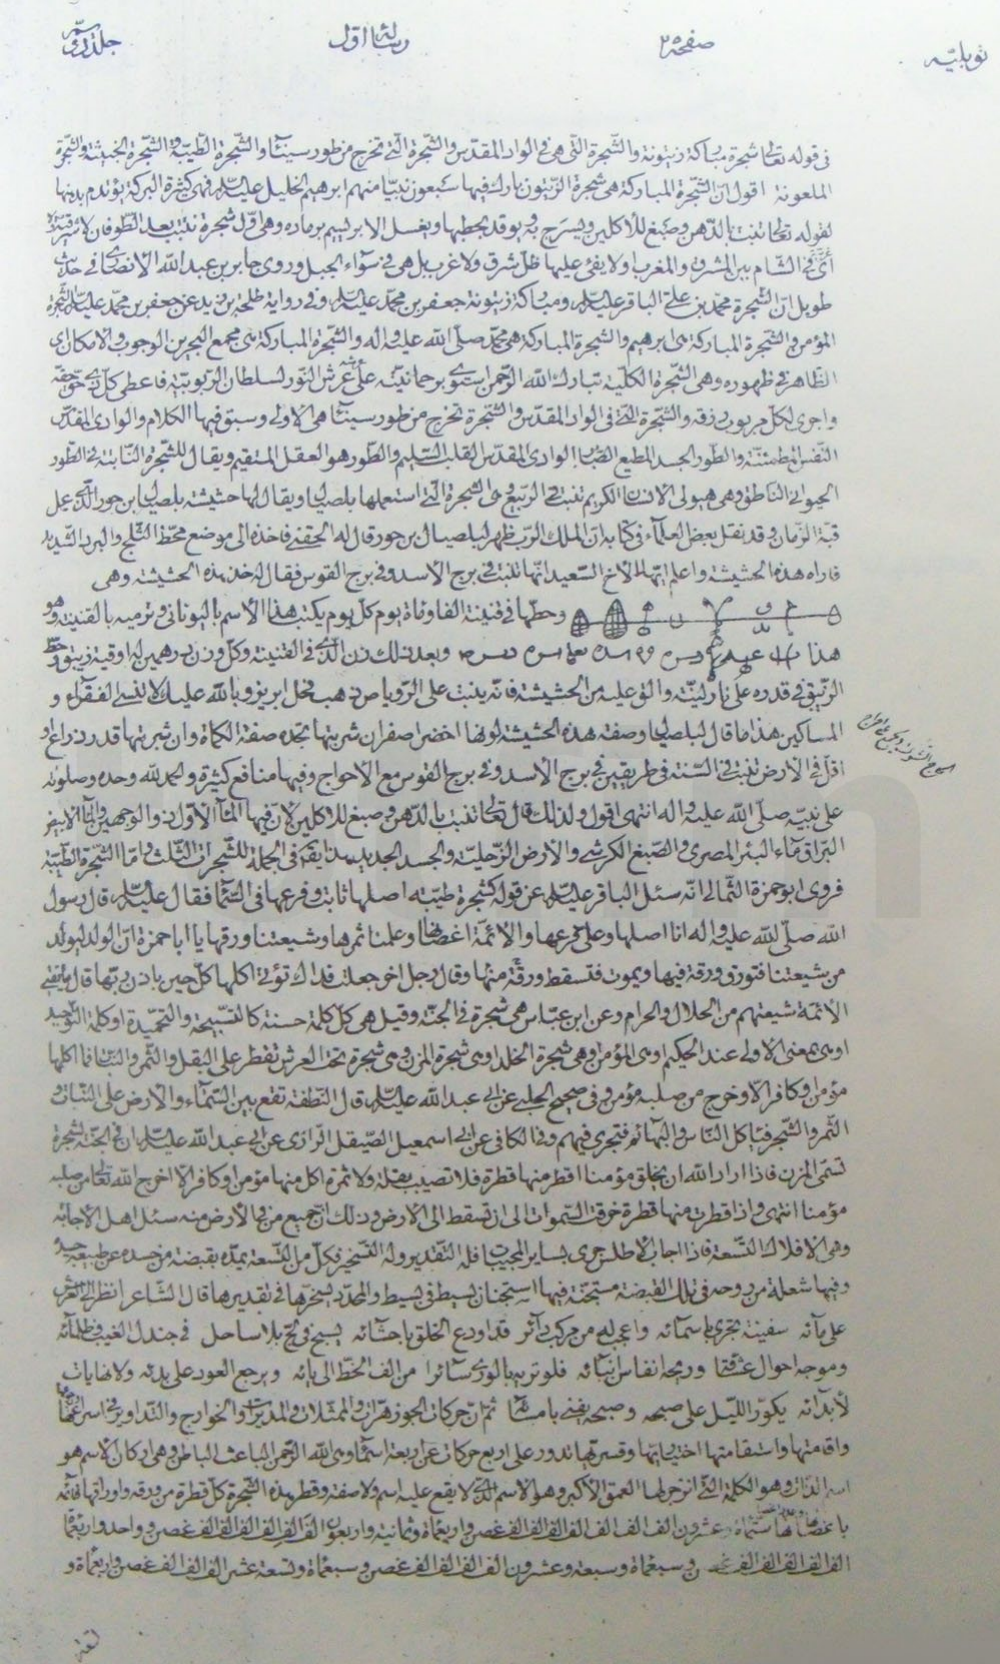 توبليه صفحة ٢٥ رسالة اول جلد دويم
في قوله تعالى شجرة مباركة زيتونة والشجرة التي هي في الواد المقدس والشجرة التي تخرج من طور سيناء والشجرة الطيبة والشجرة الخبيثة والشجرة
الملعونة اقول ان الشجرة المباركة هي شجرة الزيتون بارك فيها سبعون نبيا منهم ابرهيم الخليل عليه السلام فهي كثيرة البركة يؤتدم بدهنها
لقوله تعالى تنبت بالدهن وصبغ للاكلين ويسرج به ويوقد بحطبها ويغسل الابريسم برماده وهي اول شجرة نبتت بعد الطوفان لا شرقية
اي في الشام بين المشرق والمغرب او لا يفئ عليها ظل شرق ولا غرب بل هي في سواء الجبل وروى جابر بن عبد الله الانصاري في حديث
طويل ان الشجرة محمد بن علي الباقر عليه السلام ومباركة زيتونة جعفر بن محمد عليه السلام وفي رواية طلحة بن زيد عن جعفر بن محمد عليه السلام الشجرة
المؤمن والشجرة المباركة هي ابرهيم والشجرة المباركة هي محمد صلى الله عليه واله والشجرة المباركة هي مجمع البحرين الوجوب والامكان اي
الظاهر في ظهوره وهي الشجرة الكلية تبارك الله الرحمن استوى برحمانيته على عرش النور لسلطان الربوبية فاعطى كل ذي حق حقه
واجرى لكل مربوب رزقه والشجرة التي في الواد المقدس والشجرة تخرج من طور سيناء هي الاولى وسبق فيها الكلام والوادي المقدس
النفس المطمئنة والطور الجسد المطيع الوادي المقدس القلب السليم والطور هو العقل المستقيم ويقال للشجرة النابتة في الطور
الحيواني الناطق وهي هيولى الانسان الكريم تنبت في الربيع وهي الشجرة التي استعملها بلصيال ويقال لها حشيشة بلصيال بن حور الذي عمل
قبة الزمان وقد نقل بعض العلماء في كتابه ان الملك الرب ظهر لبلصيال بن حور قال له الحقني فاخذه الى موضع محط الثلج والبرد الشديد
فاراه هذه الحشيشة واعلم ايها الاخ السعيد انها تنبت في برج الاسد وفي برج القوس فقال له خذ هذه الحشيشة وهي
وحطها في قنينة الفاوناة يوم كل يوم يكتب هذا الاسم باليوناني وترميه بالقنينة وهو
هذا وبعد ذلك زن الذي في القنينة وكل وزن درهمين له اوقية زيبق وحط
الزيبق في قدره على نار لينة والق عليه من الحشيشة فانه ينبت على الرويا ص ذهب فحل ابريز وبالله عليك لا تنسى الفقراء و
المساكين هذا ما قال لبلصيال وصفة هذه الحشيشة لونها اخضر اصفر ان شربتها تجده صفة الكماة وان شربتها قدر ذراع او
اقل في الارض تنبت في السنة في طريقين في برج الاسد وفي برج القوس مع الاحواج وفيها منافع كثيرة والحمد لله وحده وصلوته
على نبيه صلى الله عليه واله انتهى اقول ولذلك قال تعالى تنبت بالدهن وصبغ للاكلين لان فيها الماء الاول ذو الوجهين والماء الابيض
البراق ماء البئر المصري والصبغ الكرشي والارض الزحلية والجسد الجديد هذا يقع في الجملة للشجرات الثلث واما الشجرة الطيبة
فروى ابو حمزة الثمالي انه سئل الباقر عليه السلام عن قوله كشجرة طيبة اصلها ثابت وفرعها في السماء فقال عليه السلام قال رسول
الله صلى الله عليه واله انا اصلها وعلي فرعها والائمة اغصانها وعلمنا ثمرها وشيعتنا ورقها يا ابا حمزة ان الولد ليولد
من شيعتنا فتورق ورقة فيها ويموت فتسقط ورقة منها وقال رجل اخر جعلت فداك تؤتي اكلها كل حين باذن ربها قال ما يفتي
الائمة شيعتهم من الحلال والحرام وعن ابن عباس هي شجرة في الجنة وقيل هي كل كلمة حسنة كالتسبيحة والتحميدة او كلمة التوحيد
او هي بمعنى الاولى عند الحكيم او هي المؤمن وهي شجرة الخلد او هي شجرة المزن وهي شجرة تحت العرش تقطر على البقل والثمر والنبات فما اكلها
مؤمن او كافر الا وخرج من صلبه مؤمن وفي صحيح الحلبي عن ابي عبد الله عليه السلام قال النطفة تقع بين السماء والارض على النبات و
الثمر والشجر فياكل الناس والبهائم فتجري فيهم وفي الكافي عن ابي اسمعيل الصيقل الرازي عن ابي عبد الله عليه السلام ان في الجنة لشجرة
تسمى المزن فاذا اراد الله ان يخلق مؤمنا اقطر منها قطرة فلا تصيب بقلة ولا ثمرة اكل منها مؤمن او كافر الا اخرج الله تعالى من صلبه
مؤمنا انتهى واذا قطرت منها قطرة خرقت السموات الى ان تسقط الى الارض وذلك ان جميع من في الارض منه سئل اهل الاجابة
وهي الافلاك التسعة فاذا اجاب الاطلس جرى بساير المجيب فله التقدير وله التسخير فكل من التسعة يمده بقبضة من جسده عن طبيعة جسده
وفيها شعلة من روحه في تلك القبضة مستجنة فيها استجنان بسيط في بسيط والمحدد يسخرها في تقديرها قال الشاعر انظر الى العرش
على مائه سفينة تجري باسمائه واعجب له من مركب دائر قد اودع الخلق باحشائه يسبح في لج بلا ساحل في جندل الغيب وظلمائه
وموجه احوال عشاقه وريحه انفاس انبائه فلو تريه بالورى سائرا من الف الخط الى يائه ويرجع العود على بدئه ولا نهايات
لابدائه يكور الليل على صبحه وصبحه يفنى بامسائه ثم ان حركات الجوزهرات والممثلات والمديرات والخوارج والتداوير في اسراعها
واقامتها واستقامتها اختيارها وقسرتها تدور على اربع حركات عن اربعة اسماء وهي الله الرحمن الباعث الباطن وهي اركان الاسم هو
اسم الذات وهو الكلمة التي انزجر لها العمق الاكبر وهو الاسم الذي لا يقع عليه اسم ولا صفة وقطر هذه الشجرة كل قطرة من ورقه واوراقها مائة
باغصانها ستمائة وعشرون الف الف الف الف الف الف غصن واربعمائة وثمانية واربعون الف الف الف الف الف غصن وواحد واربعمائة
الف الف الف الف الف غصن وسبعمائة وسبعة وعشرون الف الف الف الف غصن وسبعمائة وتسعة عشر الف الف الف غصن واربعمائة و